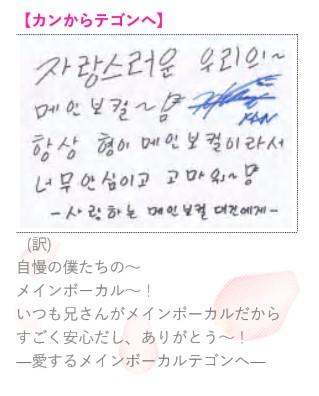 【カンからテゴンへ】
자랑스러운 우리의~
메인보컬~
KAN
항상 형이 메인보컬이라서
너무 안심이고 고마워~
-사랑하는 메인보컬 대건에게-
(訳)
自慢の僕たちの〜
メインボーカル〜！
いつも兄さんがメインボーカルだから
すごく安心だし、ありがとう〜！
―愛するメインボーカルテゴンへ―